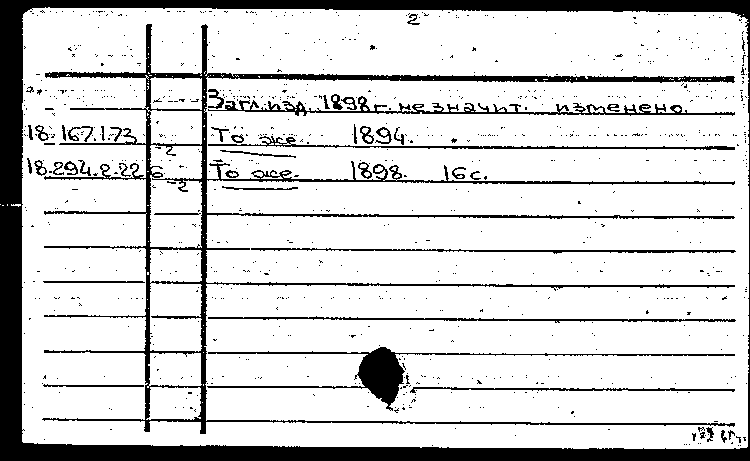 2
Загл. изд. 1898 г. незначит. изменено.
18.167.1.73 -2 То же. 1894.
18.294.2.226 -2 То же. 1898. 16 с.